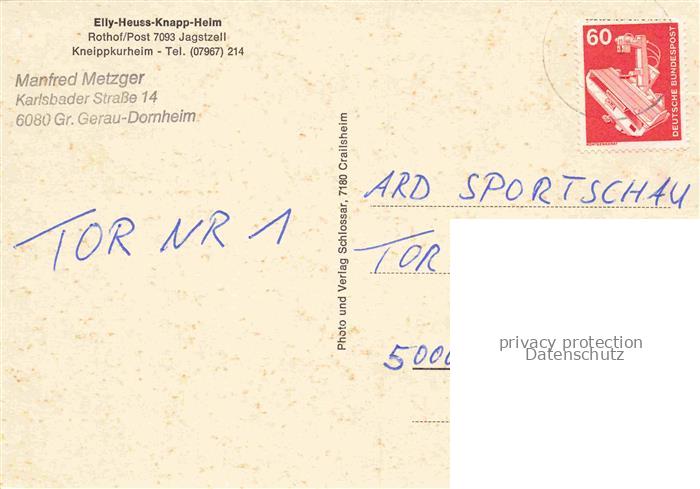 Elly-Heuss-Knapp-Heim
Rothof/Post 7093 Jagstzell
Kneippkurheim - Tel. (07967) 214
Manfred Metzger
Karlsbader Straße 14
6080 Gr. Gerau-Dornheim
60
DEUTSCHE BUNDESPOST
RÖNTGENGERÄT
Photo und Verlag Schlossar, 7180 Crailsheim
TOR NR 1
ARD SPORTSCHAU
TOR
5000
privacy protection
Datenschutz